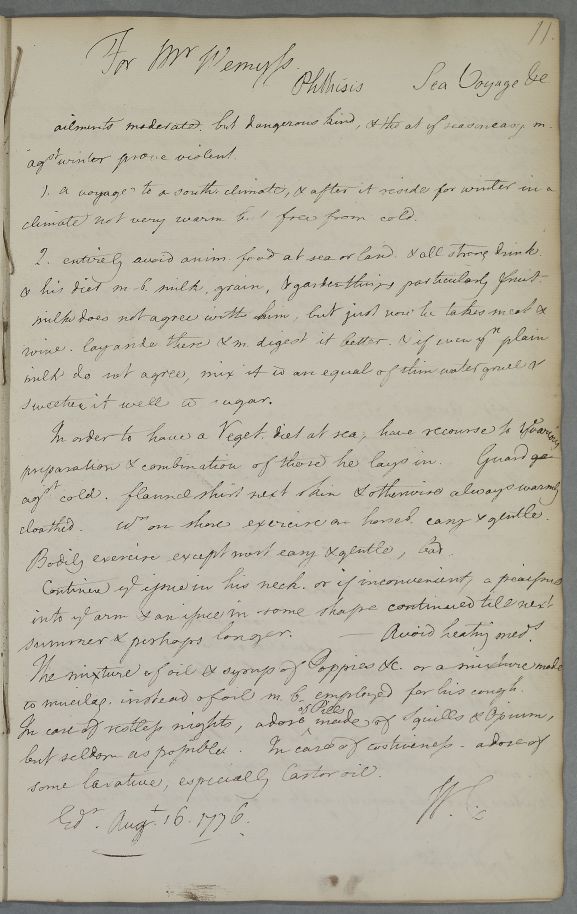 11.
For Mr Wemyss.
Phthisis Sea Voyage &c
ailments moderated. but dangerous kind, & tho at ys season easy m.
agst winter prove violent.
1. a voyage to a south. climate, & after it reside for winter in a
climate not very warm but free from cold.
2. entirely avoid anim. food at sea or land. & all strong drink
& his diet m. b. milk, grain, & garden things particularly fruit.
milk does not agree with him, but just now he takes meat &
wine. lay aside these & m. digest it better. & if even yn plain
milk do not agree, mix it w an equal of thin water gruel &
sweeten it well w sugar.
In order to have a Veget. diet at sea, have recourse to yr various
preparation & combination of those he lays in. Guard
agst cold. flannel shirt next skin & otherwise always warmly
cloathed. Wn on shore exercise on horseb. easy & gentle.
Bodily exercise except most easy & gentle, bad.
Continue ye issue in his neck. or if inconvenient, a pea issue
into ye arm & an issue in some shape continued till next
summer & perhaps longer. — Avoid heating meds.
The mixture of oil & syrup of Poppies &c. or a mixture made
w mucilag. instead of oil m. b. employed for his cough.
In case of restless nights, a dose of Pills made of Squills & Opium,
but seldom as possible. In case of costiveness. a dose of
some laxative, especially Castor oil.
Edr. Augt. 16. 1776. W. C.